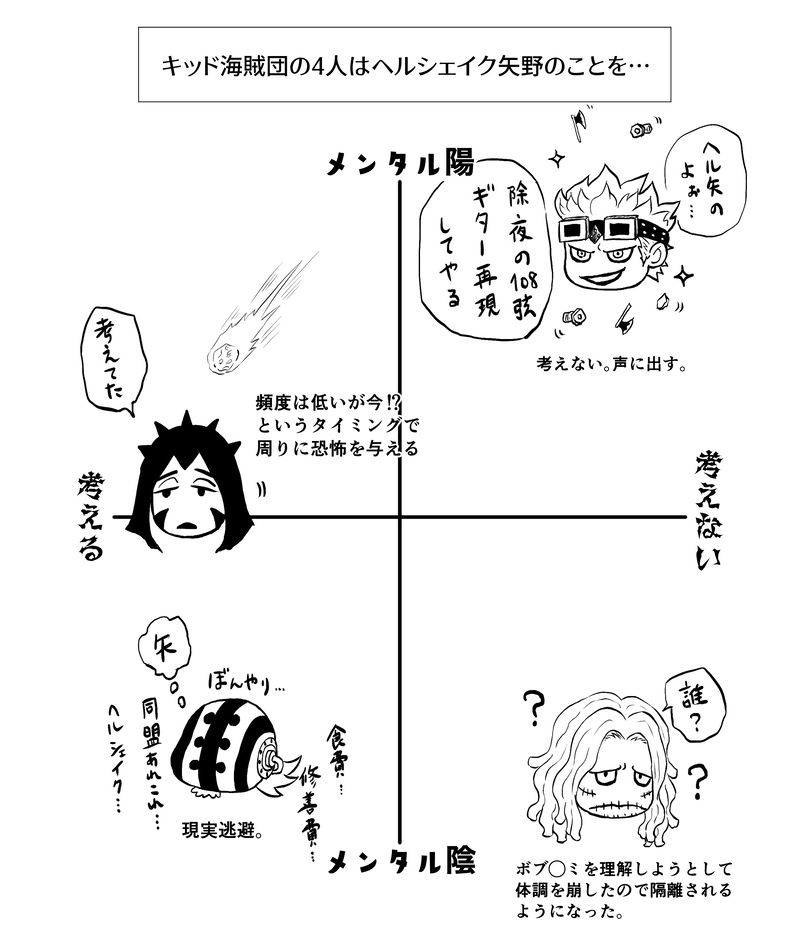 キッド海賊団の4人はヘルシェイク矢野のことを…
メンタル陽
ヘル矢の
よぉ…
除夜の108弦
ギター再現
してやる
考えない。声に出す。
考えてた
頻度は低いが今!?
というタイミングで
周りに恐怖を与える
考える
考えない
矢
ぼんやり…
同盟あれこれ…
ヘルシェイク…
食費…
修善費…
現実逃避。
メンタル陰
誰?
?
?
ボブ◯ミを理解しようとして
体調を崩したので隔離される
ようになった。